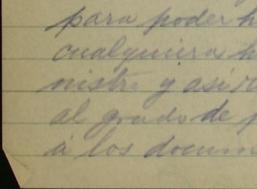 para poder h
cualquiera h
nistr y así
al grado de p
á los docum